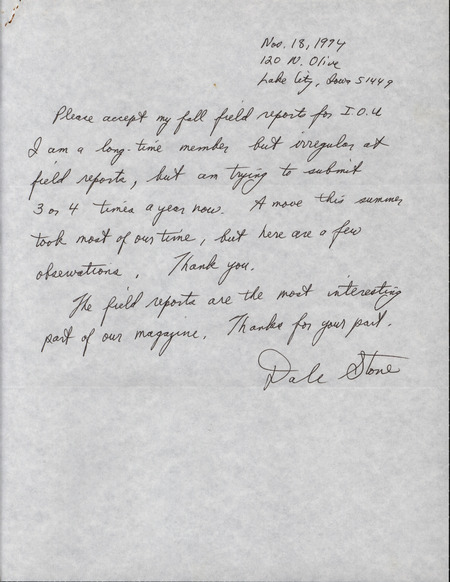 Nov. 18, 1974
120 N. Olive
Lake City, Iowa 51449
Please accept my fall field reports for I.O.U
I am a long-time member but irregular at
field reports, but am trying to submit
3 or 4 times a year now. A move this summer
took most of our time, but here are a few
observations. Thank you.
The field reports are the most interesting
part of our magazine. Thanks for your part.
Dale Stone